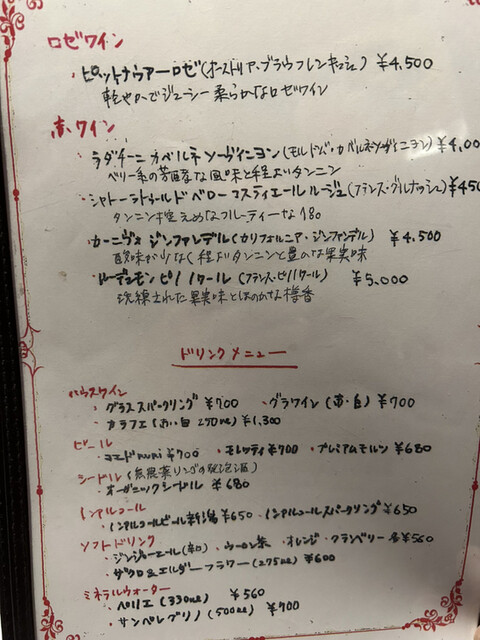 ロゼワイン
・ピットナウアーロゼ(オーストリア・ブラウフレンキッシュ) ¥4,500
軽やかでジューシー 柔らかなロゼワイン
赤ワイン
・ラダチーニ カベルネ ソーヴィニヨン(モルドバ・カベルネソーヴィニヨン) ¥4,00
ベリー系の芳醇な風味と程よいタンニン
・シャトーラトゥールド ベロー マスティエール ルージュ(フランス・グルナッシュ) ¥450
タンニン控えめなフルーティーな1本
・カーニヴォ ジンファンデル(カリフォルニア・ジンファンデル) ¥4,500
酸味が少なく程よいタンニンと豊かな果実味
ピノノワール (フランス・ピノノワール) ¥5,000
洗練された果実味とほのかな樽香
ドリンクメニュー
ハウスワイン
・グラススパークリング ¥700 ・グラスワイン(赤・白) ¥700
・カラフェ(赤・白 250ml) ¥1,300
ビール
・コエド ¥700 ・モレッティ ¥700 ・プレミアムモルツ ¥680
シードル(無農薬リンゴの発泡酒)
・オーガニックシードル ¥680
ノンアルコール
・ノンアルコールビール新潟 ¥650 ・ノンアルコールスパークリング ¥650
ソフトドリンク
・ジンジャーエール(辛口) ・ウーロン茶 ・オレンジ・クランベリー 各¥560
・ザクロ&エルダーフラワー(275ml) ¥600
ミネラルウォーター
・ペリエ(330ml) ¥560
・サンペレグリノ(500ml) ¥700